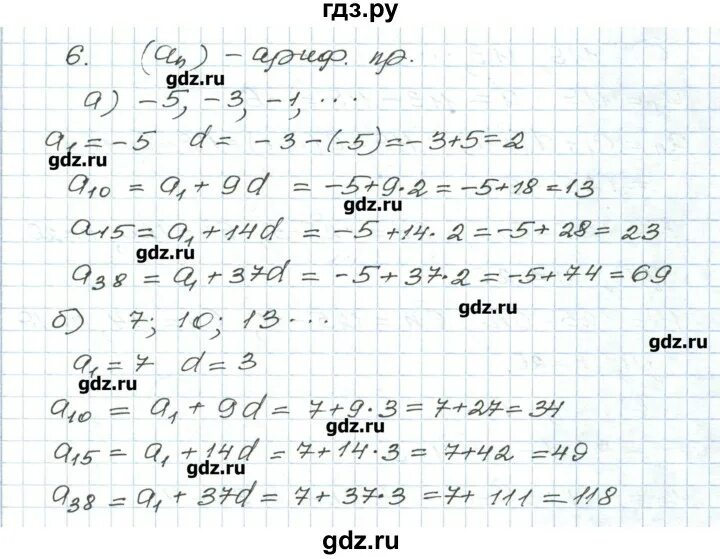 гдз.ру
6. (aₙ) – ариф. пр.
gdz.ru
а) –5, –3, –1, ...
a₁ = –5 d = –3–(–5)=–3+5=2
gdz.ru
a₁₀ = a₁ + 9d = –5+9·2=–5+18=13
gdz.ru
a₁₅ = a₁ + 14d = –5+14·2=–5+28=23
gdz.ru
a₃₈ = a₁ + 37d = –5+37·2=–5+74=69
gdz.ru
б) 7; 10; 13 ...
gdz.ru
a₁ = 7 d = 3
gdz.ru
a₁₀ = a₁ + 9d = 7+9·3=7+27=34
gdz.ru
a₁₅ = a₁ + 14d = 7+14·3 = 7+42 =49
gdz.ru
a₃₈ = a₁ + 37d = 7+ 37·3 =7+ 111 = 118
gdz.ru